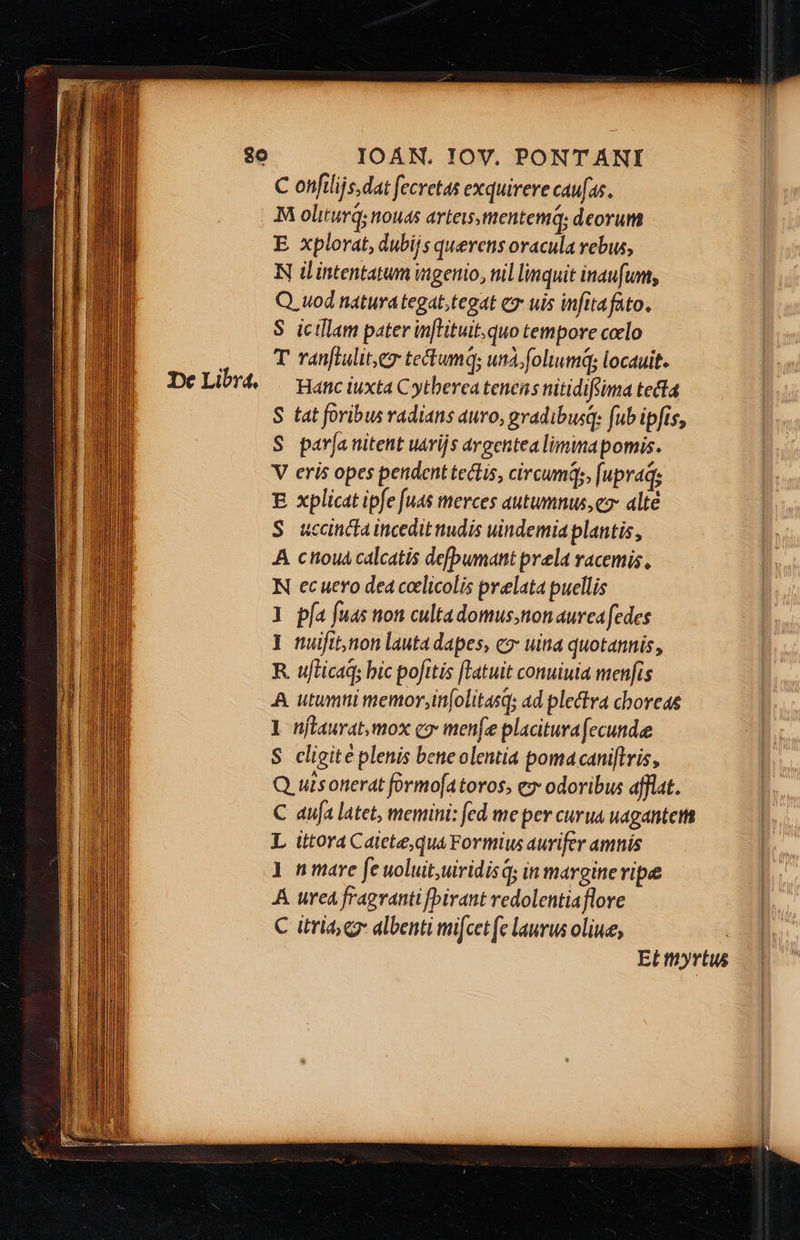 80 IOAN. IOV. PONTANI
C onſilijs, dat ſecretas exquirere cauſas.
M oliturq; nouas arteis, mentemq́; deorum
E xplorat, dubijs quærens oracula rebus,
N il intentatum ingenio, nil linquit inauſum,
Q uod natura tegat, tegat & uis inſita fato.
S ic illam pater inſtituit, quo tempore cœlo
T ranſtulit, & tectumq́; unà, ſoliumq́; locauit.
De Libra. Hanc iuxta Cytherea tenens nitidiſsima tecta
S tat foribus radians auro, gradibusq́; ſub ipſis,
S parſa nitent uarijs argentea limina pomis.
V eris opes pendent tectis, circumq́;, ſupraq́;
E xplicat ipſe ſuas merces autumnus, & altè
S uccincta incedit nudis uindemia plantis,
A c nouà calcatis deſpumant præla racemis.
N ec uero dea cœlicolis prælata puellis
I pſa ſuas non culta domus, non aurea ſedes
I nuiſit, non lauta dapes, & uina quotannis,
R uſticaq́; hic poſitis ſtatuit conuiuia menſis
A utumni memor, inſolitasq́; ad plectra choreas
I nſtaurat, mox & menſæ placitura ſecundæ
S eligit è plenis bene olentia poma caniſtris,
Q uis onerat formoſa toros, & odoribus afflat.
C auſa latet, memini: ſed me per curua uagantem
L ittora Caietæ, quà Formius aurifer amnis
I n mare ſe uoluit, uiridisq́; in margine ripæ
A urea fragranti ſpirant redolentia flore
C itria, & albenti miſcet ſe laurus oliuæ,
Et myrtus